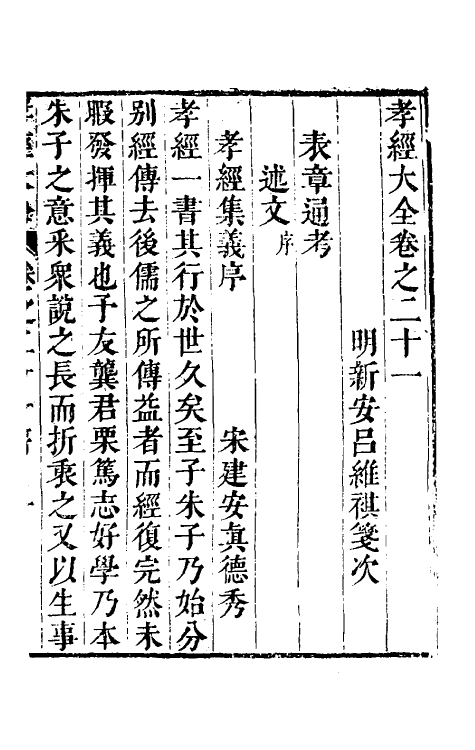 孝經大全卷之二十一
明新安呂維祺箋次
表章通考
述文序
孝經集義序 宋建安眞德秀
孝經一書其行於世久矣至子朱子乃始分
别經傳去後儒之所傅益者而經復完然未
暇發揮其義也予友龔君栗篤志好學乃本
朱子之意釆衆說之長而折衷之又以生事